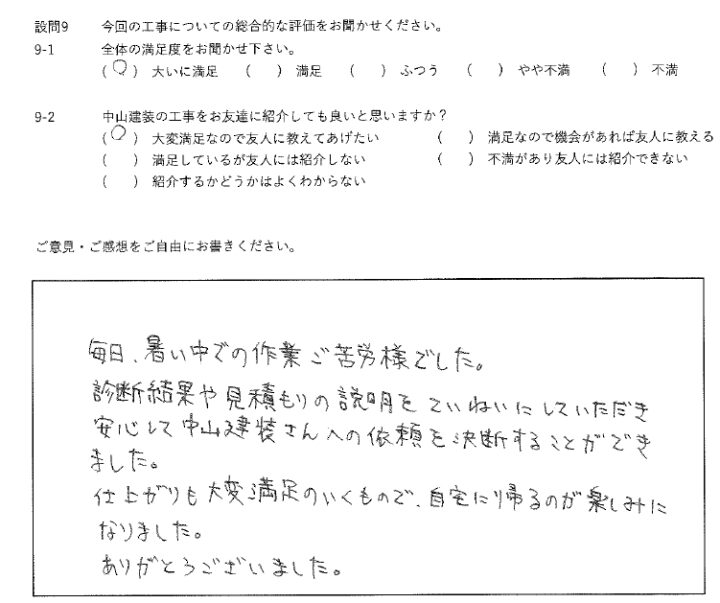 設問9 今回の工事についての総合的な評価をお聞かせください。
9-1 全体の満足度をお聞かせ下さい。
(○) 大いに満足 ( ) 満足 ( ) ふつう ( ) やや不満 ( ) 不満
9-2 中山建装の工事をお友達に紹介しても良いと思いますか？
(○) 大変満足なので友人に教えてあげたい ( ) 満足なので機会があれば友人に教える
( ) 満足しているが友人には紹介しない ( ) 不満があり友人には紹介できない
( ) 紹介するかどうかはよくわからない
ご意見・ご感想をご自由にお書きください。
毎日、暑い中での作業ご苦労様でした。
診断結果や見積もりの説明をていねいにしていただき
安心して中山建装さんへの依頼を決断することができ
ました。
仕上がりも大変満足のいくもので、自宅に帰るのが楽しみに
なりました。
ありがとうございました。